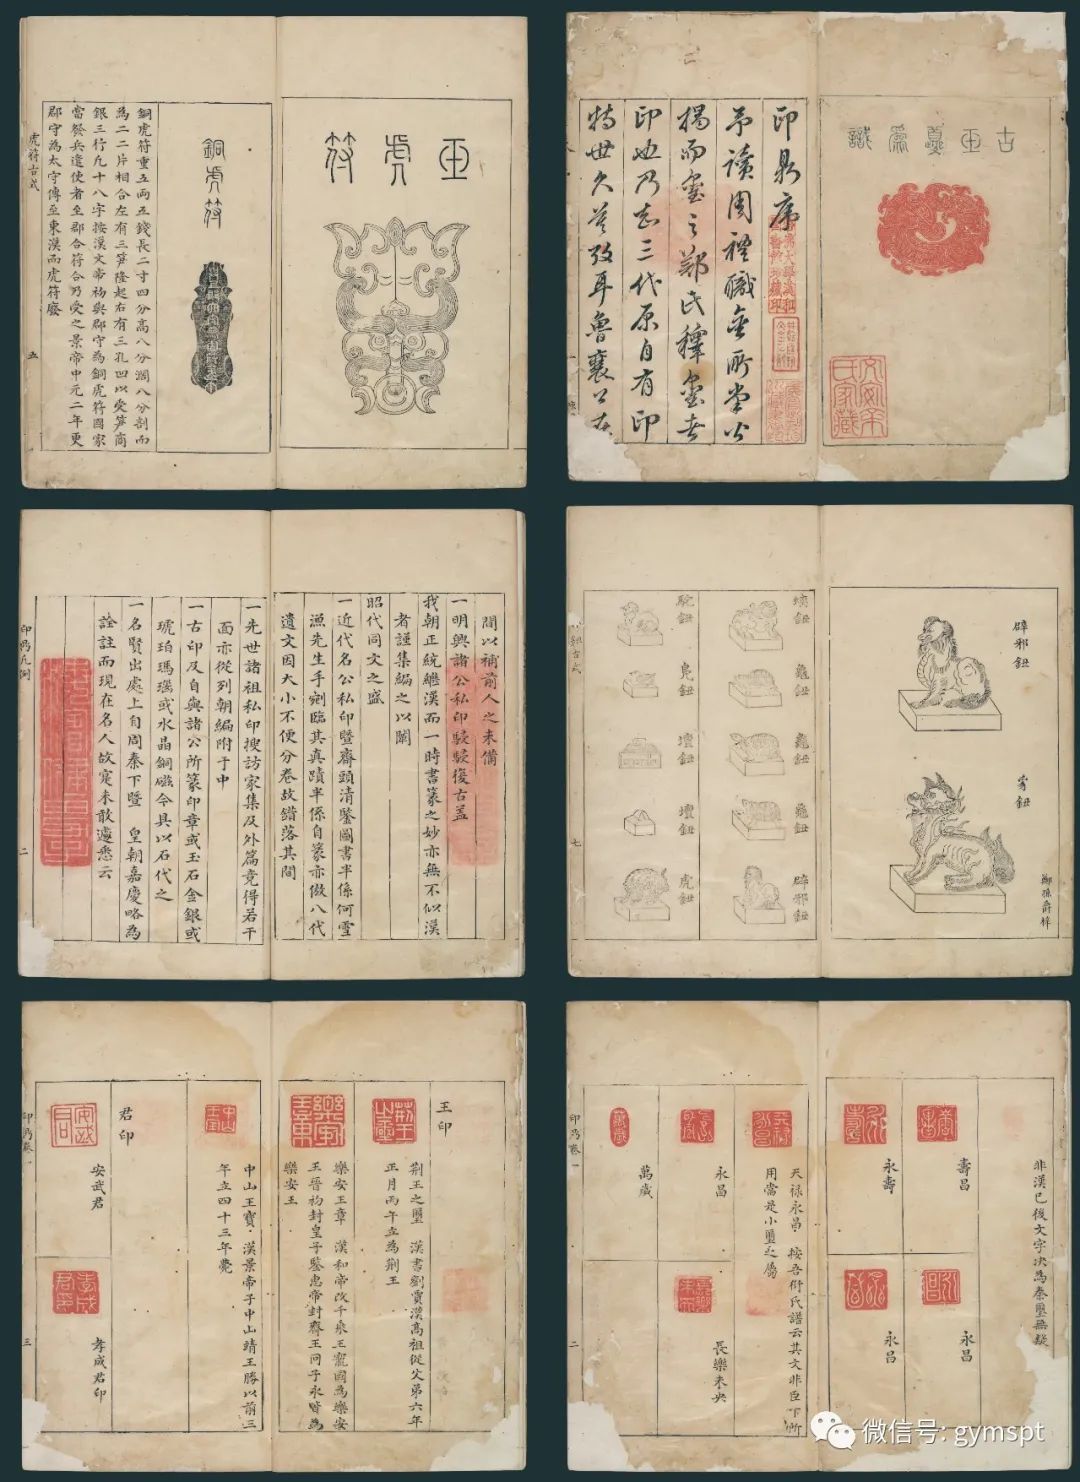 玉虎符
銅虎符
銅虎符重五两五錢長二寸四分高八分濶八分剖而
為二二片相合左有三笋隆起右有三孔凹以受笋商
銀三行凢十八字按漢文帝初與郡守為銅虎符國家
當發兵遣使者至郡合符合乃受之景帝中元二年更
郡守為太守傳至東漢而虎符廢
虎符古式
五
古玉㻎為識
文安余氏家藏
印㝵序
予讀周禮職金所掌
楬而璽之鄭氏釋璽者
印也乃知三代原自有印
特世久莫攷耳魯襄公在
間以補前人之未備
一明興諸公私印駸駸復古蓋
我朝正統繼漢而一時書篆之妙亦無不似漢
者謹集編之以闡
昭代同文之盛
一近代名公私印暨齋頭清鑒圖書半係何雪
漁先生手劍臨其真蹟半係自篆亦倣八代
遺文因大小不便分卷故錯落其間
一先世諸祖私印搜訪家集及外篇竟得若干
面亦從列朝編附于中
一古印及自與諸公所篆印章或玉石金銀或
琥珀瑪瑙或水晶銅磁今具以石代之
一名賢出處上自周秦下暨 皇朝嘉慶略為
詮註而現在名人故寔未敢遽悉云
凡例
二
辟邪鈕
豸鈕
螭鈕
龜鈕
龜鈕
龜鈕
辟邪鈕
駝鈕
鳬鈕
壇鈕
壇鈕
虎鈕
鈕古式
七
王印
荆王之璽 漢書劉賈漢高祖從父弟六年
正月丙午立為荆王
樂安王章 漢和帝改千乘王寵國為樂安
王晉初封皇子鑒惠帝封齊王冏子永皆為
樂安王
中山王寶 漢景帝子中山靖王勝以前三
年立四十三年薨
君印
安武君
孝成君印
卷一
三
非漢已後文字决為秦璽無疑
壽昌
永壽
永昌
永昌
天禄永昌 按吾衍氏譜云其文非臣下所
用當是小璽之屬
永昌
長樂未央
萬歲
卷一
二
微信号: gymspt